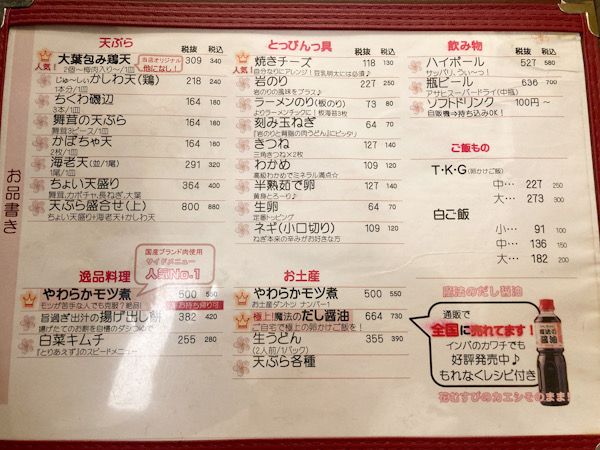 お品書き
天ぷら 税抜 税込
人気! 大葉包み鶏天 309 340
当店オリジナル 他になし!
2個〜梅肉入り〜/1皿
じゅ〜しぃかしわ天(鶏) 218 240
1本分/1皿
ちくわ磯辺 164 180
3本/1皿
舞茸の天ぷら 164 180
舞茸3ピース/1皿
かぼちゃ天 164 180
2枚/1皿
海老天(並/1尾) 291 320
1尾/1皿
ちょい天盛り 364 400
舞茸、カボチャ、長ねぎ、大葉
天ぷら盛合せ(上) 800 880
ちょい天盛り+海老天+かしわ天
とっぴんっ具 税抜 税込
人気! 焼きチーズ 118 130
自分なりにアレンジ!豆乳明太には必須♪
岩のり 227 250
岩のりの風味をプラス♪
ラーメンのり(板のり) 73 80
よりラーメンチックに!板海苔3枚
刻み玉ねぎ 64 70
『岩のりと背脂の肉うどん』にピッタリ
きつね 127 140
三角きつね×2枚
わかめ 109 120
高級わかめでミネラル満点☆
半熟茹で卵 127 140
黄身とろ〜り♪
生卵 64 70
定番トッピング
ネギ(小口切り) 109 120
ねぎ本来の辛みがお好きな方
飲み物 税抜 税込
ハイボール 527 580
サッパリ、うぃ〜っ!
瓶ビール 636 700
アサヒスーパードライ(中瓶)
ソフトドリンク 100円〜
自販機⇒持ち込みOK!
ご飯もの
T・K・G(卵かけご飯)
中… 227 250
大… 273 300
白ご飯
小… 91 100
中… 136 150
大… 182 200
逸品料理 税抜 税込
国産ブランド肉使用
サイドメニュー
人気No.1
やわらかモツ煮 500 550
モツが苦手な人でも克服?絶品! お持ち帰り可
旨過ぎ出汁の揚げ出し餅 382 420
揚げたてのお餅を自慢のダシつゆで
白菜キムチ 255 280
『とりあえず』のスピードメニュー
お土産 税抜 税込
やわらかモツ煮 500 550
お土産ダントツ ナンバー1
極上!魔法のだし醤油 664 730
ご自宅で極上の卵かけご飯を!
生うどん 355 390
(2人前/1パック)
天ぷら各種
魔法のだし醤油
通販で
全国に売れてます!
インパのカワチでも
好評発売中♪
もれなくレシピ付き
花むすびのカエシそのまま!